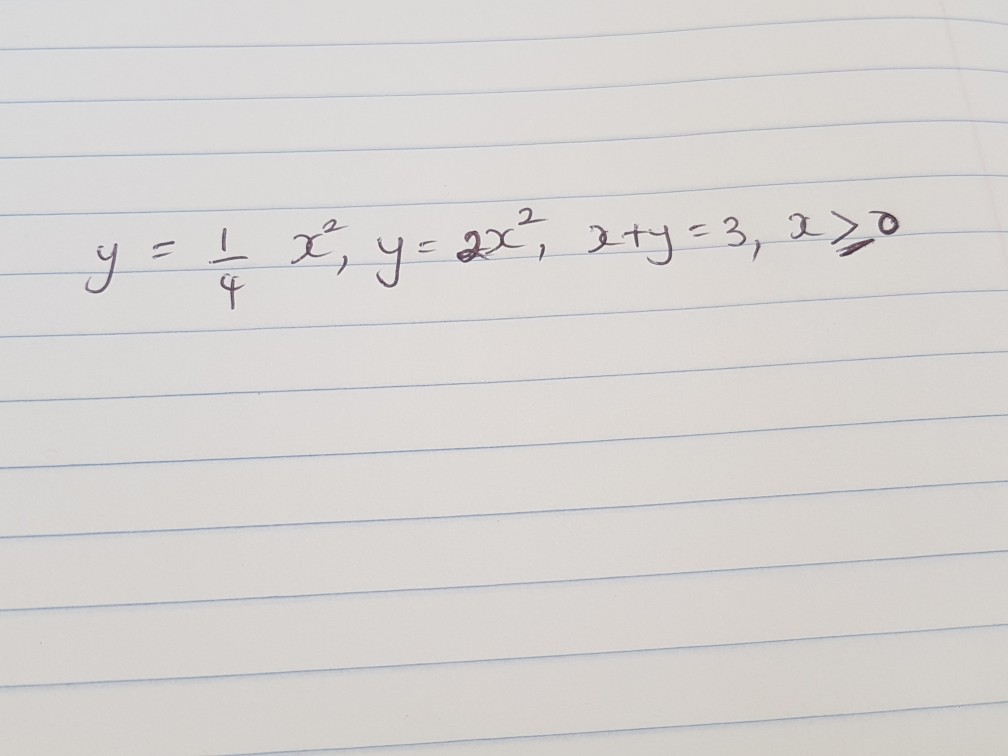 y = 1/4 x², y = 2x², x+y = 3, x ≥ 0